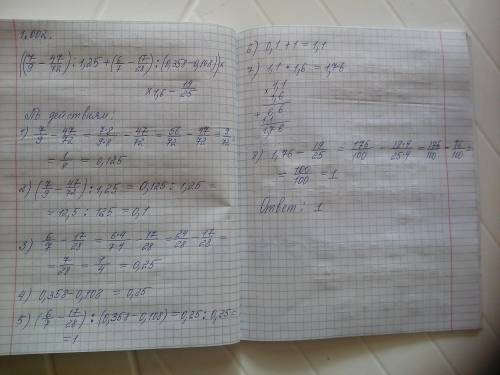 1.002.
((7/9 − 47/72) : 1,25 + (6/7 − 17/28) : (0,358−0,108)) ×
× 1,6 − 19/25
По действиям:
1) 7/9 − 47/72 = 7·8/9·8 − 47/72 = 56/72 − 47/72 = 9/72 =
= 1/8 = 0,125
2) (7/9 − 47/72) : 1,25 = 0,125 : 1,25 =
= 12,5 : 125 = 0,1
3) 6/7 − 17/28 = 6·4/7·4 − 17/28 = 24/28 − 17/28 =
= 7/28 = 1/4 = 0,25
4) 0,358−0,108 = 0,25
5) (6/7 − 17/28) : (0,358−0,108) = 0,25 : 0,25 =
= 1
6) 0,1 + 1 = 1,1
7) 1,1 · 1,6 = 1,76
× 1,1
1,6
+ 6,6
1 1
1,7 6
8) 1,76 − 19/25 = 176/100 − 19·4/25·4 = 176/100 − 76/100 =
= 100/100 = 1
Ответ: 1